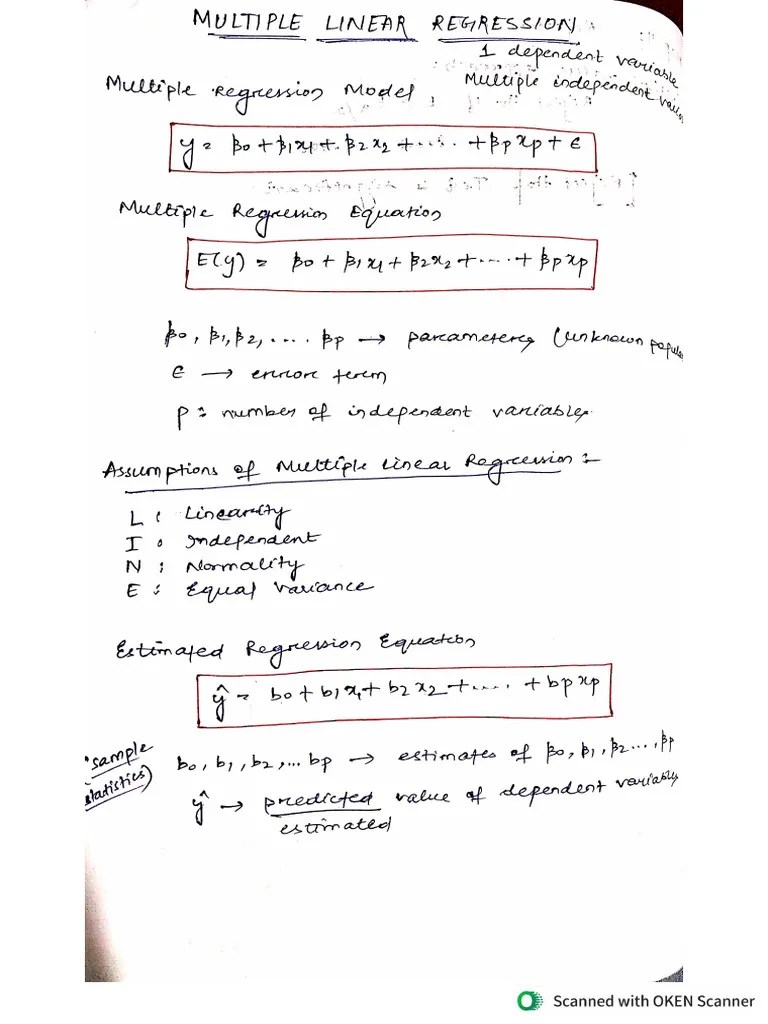 MULTIPLE LINEAR REGRESSION
1 dependent variable
Multiple Regression Model, Multiple independent
y = β0 + β1x1 + β2x2 + ..... + βpxp + ϵ
Multiple Regression Equation
E(y) = β0 + β1x1 + β2x2 + ..... + βpxp
β0, β1, β2, .... βp → parameters (unknown
ϵ → error term
p : number of independent variables.
Assumptions of Multiple Linear Regression :-
L : Linearity
I : Independent
N : Normality
E : Equal Variance
Estimated Regression Equation
ŷ = b0 + b1x1 + b2x2 + ..... + bpxp
sample
statistics)
b0, b1, b2, ... bp → estimates of β0, β1, β2 ..., βp
ŷ → predicted value of dependent variable
estimated
Scanned with OKEN Scanner